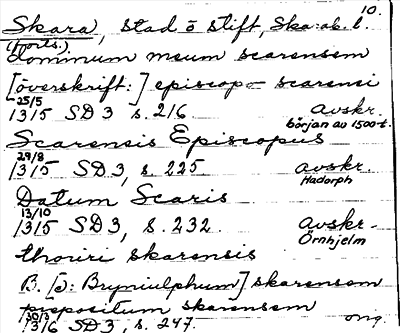 10.
Skara, stad o stift, Ska:ab. l.
(forts.)
dominum meum scarensem
[överskrift:] episcop– scarensi
25/5 1315 SD 3 s. 216 avskr. början av 1500-t.
Scarensis Episcopus
29/8 1315 SD 3, s. 225 avskr. Hadorph
Datum Scaris
13/10 1315 SD 3, s. 232 avskr. Örnhjelm
thoriri skarensis
B. [ɔ: Bryniulphum] skarensem
prepositum skarensem
1316 SD 3, s. 247. orig.